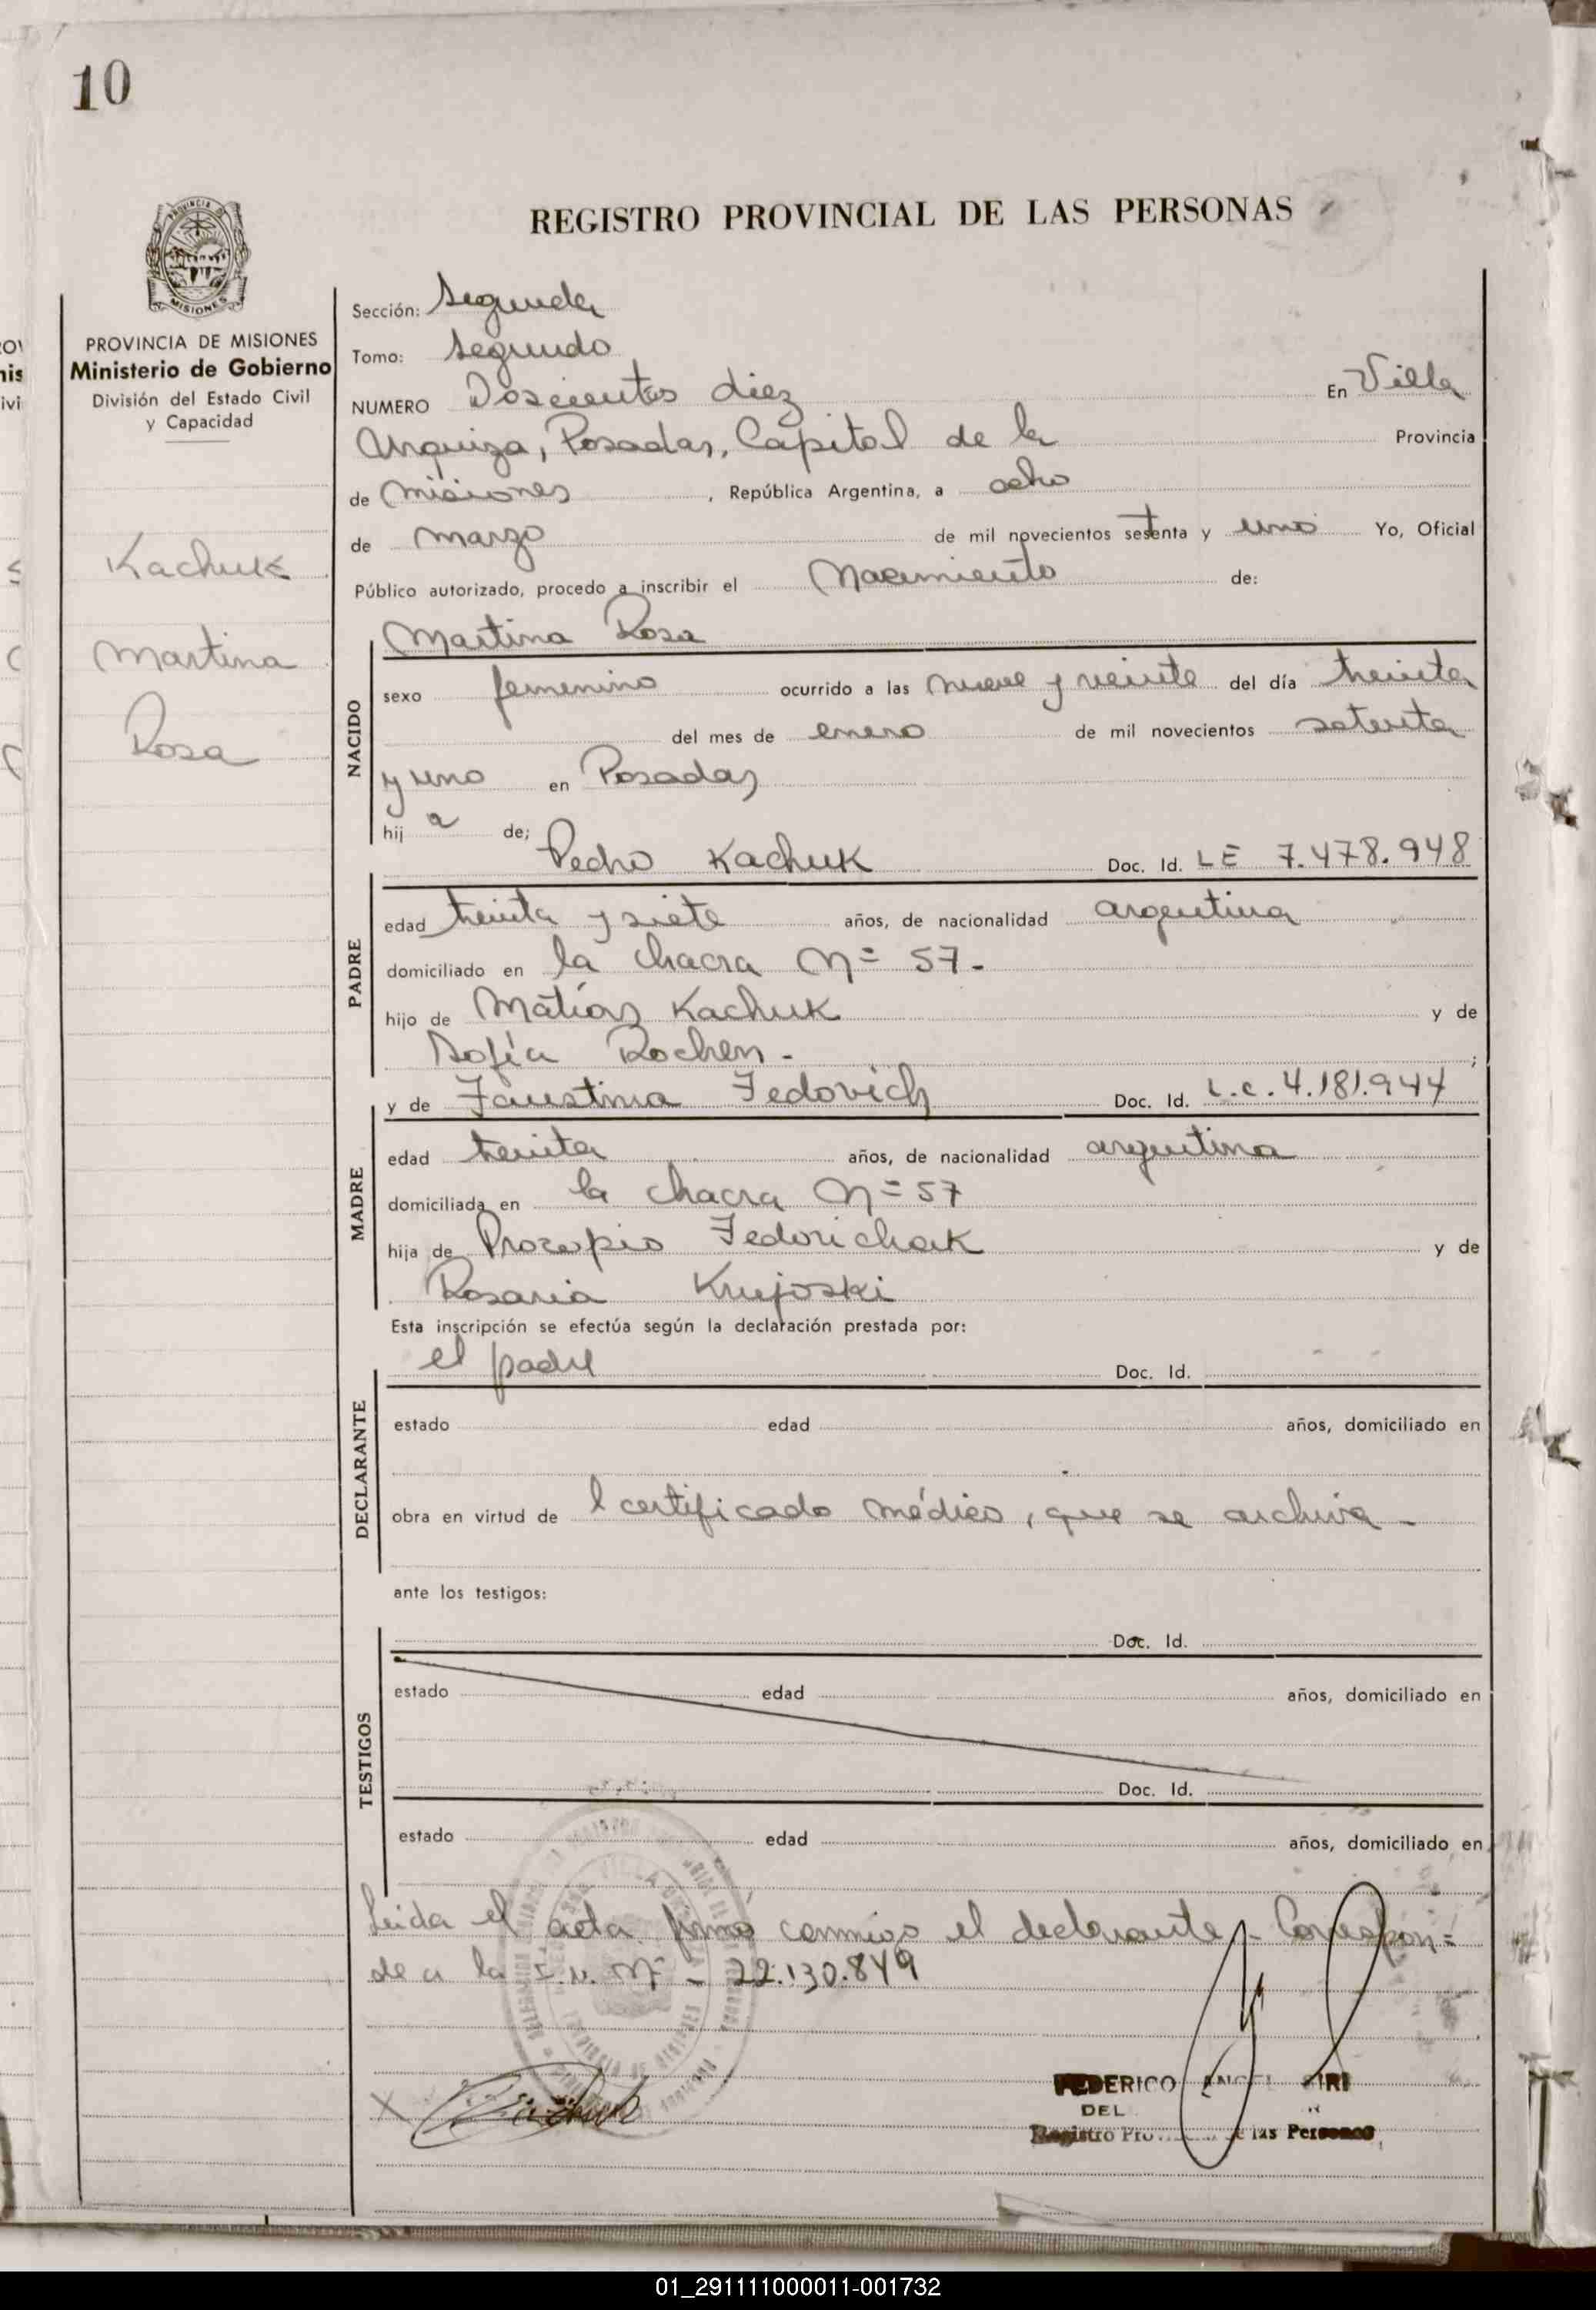 10
REGISTRO PROVINCIAL DE LAS PERSONAS
PROVINCIA DE MISIONES
Ministerio de Gobierno
División del Estado Civil
y Capacidad
Kachuk
Martina
Rosa
Sección: Segunda
Tomo: Segundo
NUMERO Doscientos diez En Villa
Urquiza, Posadas, Capital de la Provincia
de Misiones, República Argentina, a ocho
de marzo de mil novecientos setenta y uno Yo, Oficial
Público autorizado, procedo a inscribir el Nacimiento de:
Martina Rosa
NACIDO
sexo femenino ocurrido a las nueve y veinte del día treinta
del mes de enero de mil novecientos setenta
y uno en Posadas
hij a de;
Pedro Kachuk Doc. Id. LE 7.478.948
PADRE
edad treinta y siete años, de nacionalidad argentina
domiciliado en la chacra Nº 57.-
hijo de Matías Kachuk y de
Sofía Rochen.- ;
y de Faustina Fedovich Doc. Id. L.C. 4.181.944
MADRE
edad treinta años, de nacionalidad argentina
domiciliada en la chacra Nº 57
hija de Procopio Fedorichak y de
Rosaria Krujoski
Esta inscripción se efectúa según la declaración prestada por:
el padre Doc. Id.
DECLARANTE
estado edad años, domiciliado en
obra en virtud de l certificado médico, que se archiva.-
ante los testigos:
Doc. Id.
TESTIGOS
estado edad años, domiciliado en
Doc. Id.
estado edad años, domiciliado en
Leida el acta firmó conmigo el declarante.- Correspon=
de a la I.N. Nº 22.130.849
FEDERICO ANGEL
DEL
Registro de las Personas
01_291111000011-001732